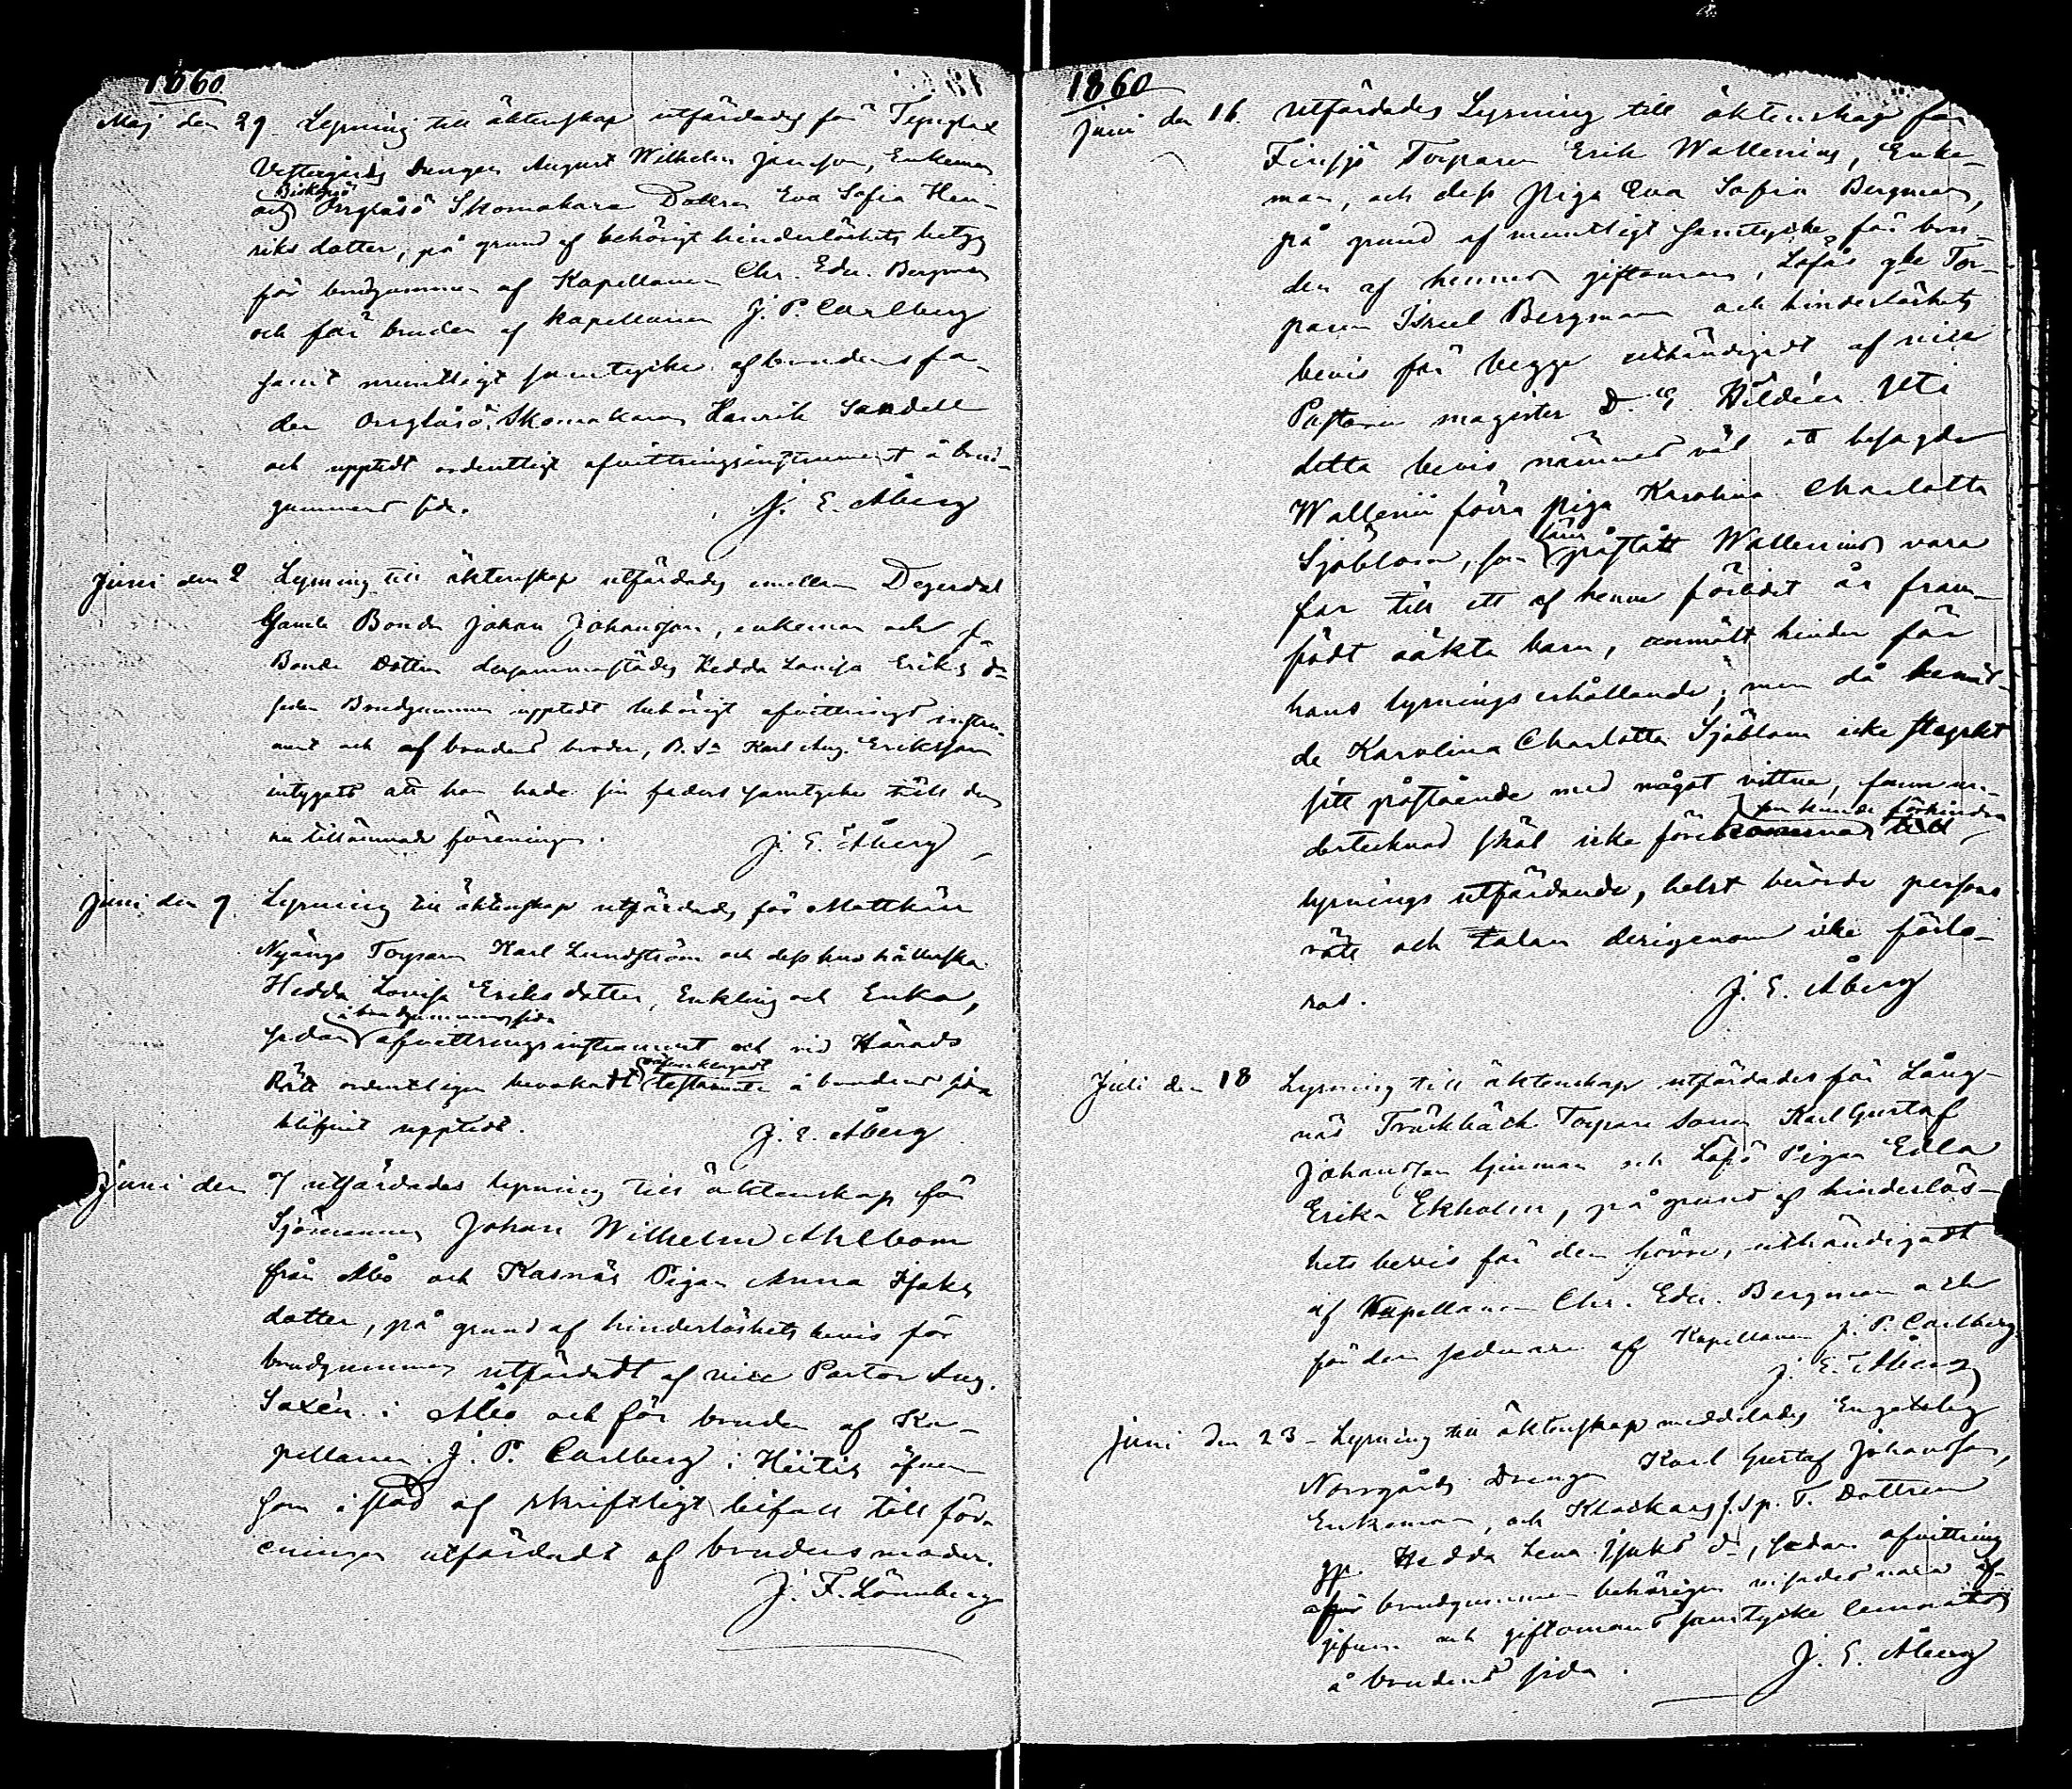 1860
Maj den 29. Lysning till äktenskap utfärdades för
Vestergårds Drengen August Wilhelm Jansson, Enkeman
Biskopsö
och Örglasö Skomakare Dottren Eva Sofia Hen-
riks dotter, på grund af behörigt hinderlöshets betyg
för brudgummen af Kapellanen Chr. Edu. Bergman
och för bruden af kapellanen J. P. Carlberg
samt muntligt samtycke af brudens fa-
der Skomakaren Henrik Sandell
och uppteedt ordentligt afvittringsinstrument å brud-
gummens sida. J. E. Åberg
Juni den 2 Lysning till äktenskap utfärdades emellan Degerdal
Gamla Bonde Johan Johansson, enkeman och
Bonde Dottren dersammastädes Hedda Lovisa Eriks dr
sedan Brudgummen uppteedt behörigt afvittrings instru-
ment och af brudens broder, B. Sn Karl Aug. Eriksson
intygats att hon hade sin faders samtycke till den
nu tillämnade föreningen. J. E. Åberg
Juni den 7. Lysning till äktenskap utfärdades för Mattkärr
Nyängs Torparen Karl Lundström och dess hushållerska
Hedda Lovisa Eriks dotter, Enkling och Enka,
å brudgummens sida
sedan afvittringsinstrument och vid Härads
Rätt ordentligen bevakadt testamente å brudens sida
blifvit uppteedt. J. E. Åberg
Juni den 7 utfärdades lysning till äktenskap för
Sjömannen Johan Wilhelm Ahlbom
från Åbo och Kasnäs Pigan Anna Isaks
dotter, på grund af hinderlöshets bevis för
brudgummen utfärdadt af vice Pastor Aug.
Saxén i Åbo och för bruden af Ka-
pellanen J. P. Carlberg i Hiitis äfven-
som i stöd af skriftligt bifall till för-
eningen utfärdadt af brudens moder.
J. F. Lönnberg
1860
Juni den 16. Utfärdades Lysning till äktenskap för
Finsjö Torparen Erik Wallenius, Enke-
man, och dess Piga Eva Sofia Bergman,
på grund af muntligt samtycke för bru-
den af hennes giftoman, Löfös gle Tor-
paren Isruel Bergman och hinderlöshets
bevis för begge uthändigadt af vice
Pastorn magister D. E. Hildéen. Uti
detta bevis nämnes väl att besagde
Wallenii förra piga Karolina Charlotta
Sjöblom, som påstått Wallenius vara
far till ett af henne förlidet år fram-
födt oäkta barn, anmält hinder för
hans lysnings erhållande; men då bemäl-
de Karolina Charlotta Sjöblom icke styrkt
sitt påstående med något vittne, fann un-
som kunde förhindra
dertecknad skäl icke förekomma
lysnings utfärdande, helst berörde persons
rätt och talan derigenom icke förlo-
rad. J. E. Åberg
Juli den 18 Lysning till äktenskap utfärdades för Lång-
näs Träskbäck Torpare Sonen Karl Gustaf
Johansson och Löfö Pigan Edla
Erika Ekholm, på grund af hinderlös-
hets bevis för den förre, uthändigadt
af Kapellanen Chr. Edu. Bergman och
för den sednare af Kapellanen J. P. Carlberg.
J. E. Åberg
Juni den 23 - Lysning till äktenskap meddelades Engelsby
Norrgårds Drengen Karl Gustaf Johansson,
Enkeman, och T. Dottren
Hedda Lena Isaks dr, sedan afvittring
för brudgummen behörigen visades vara af-
gifven och giftomans samtycke
å brudens sida. J. E. Åberg